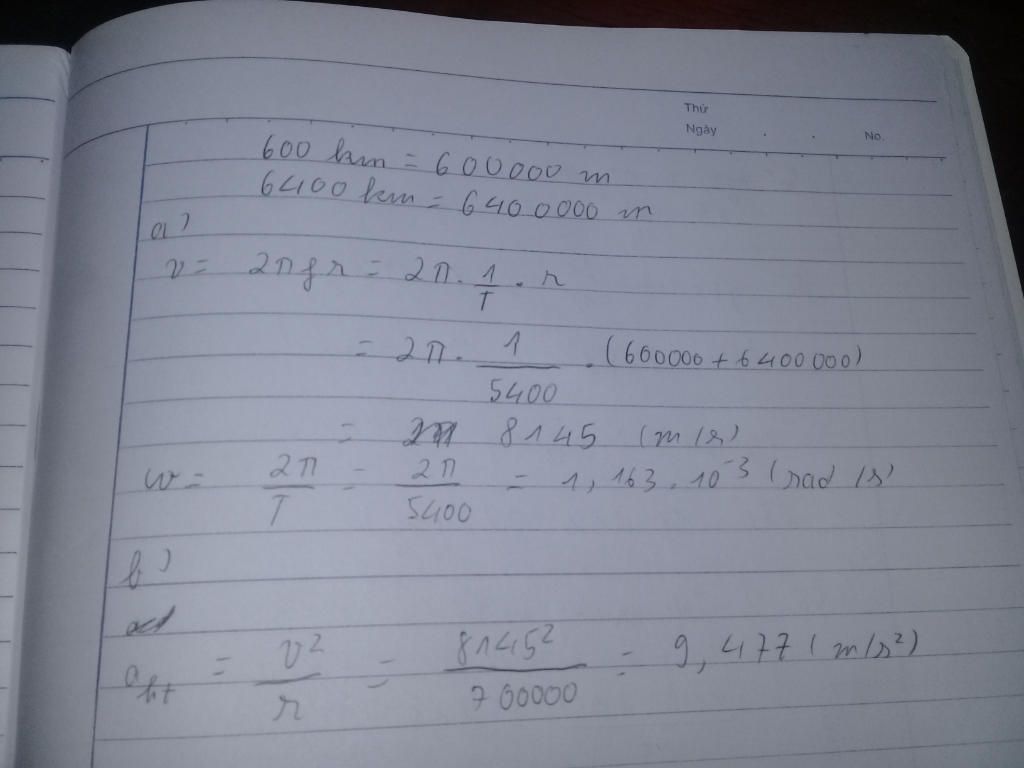 Thứ
Ngày . . No.
600 km = 600000 m
6400 km = 6400000 m
a)
v = 2πfr = 2π. 1/T . r
= 2π. 1/5400 .(600000 + 6400000)
= 8145 (m/s)
w = 2π/T = 2π/5400 = 1,163.10⁻³ (rad/s)
b)
aht = v²/r = 8145²/700000 = 9,477 (m/s²)